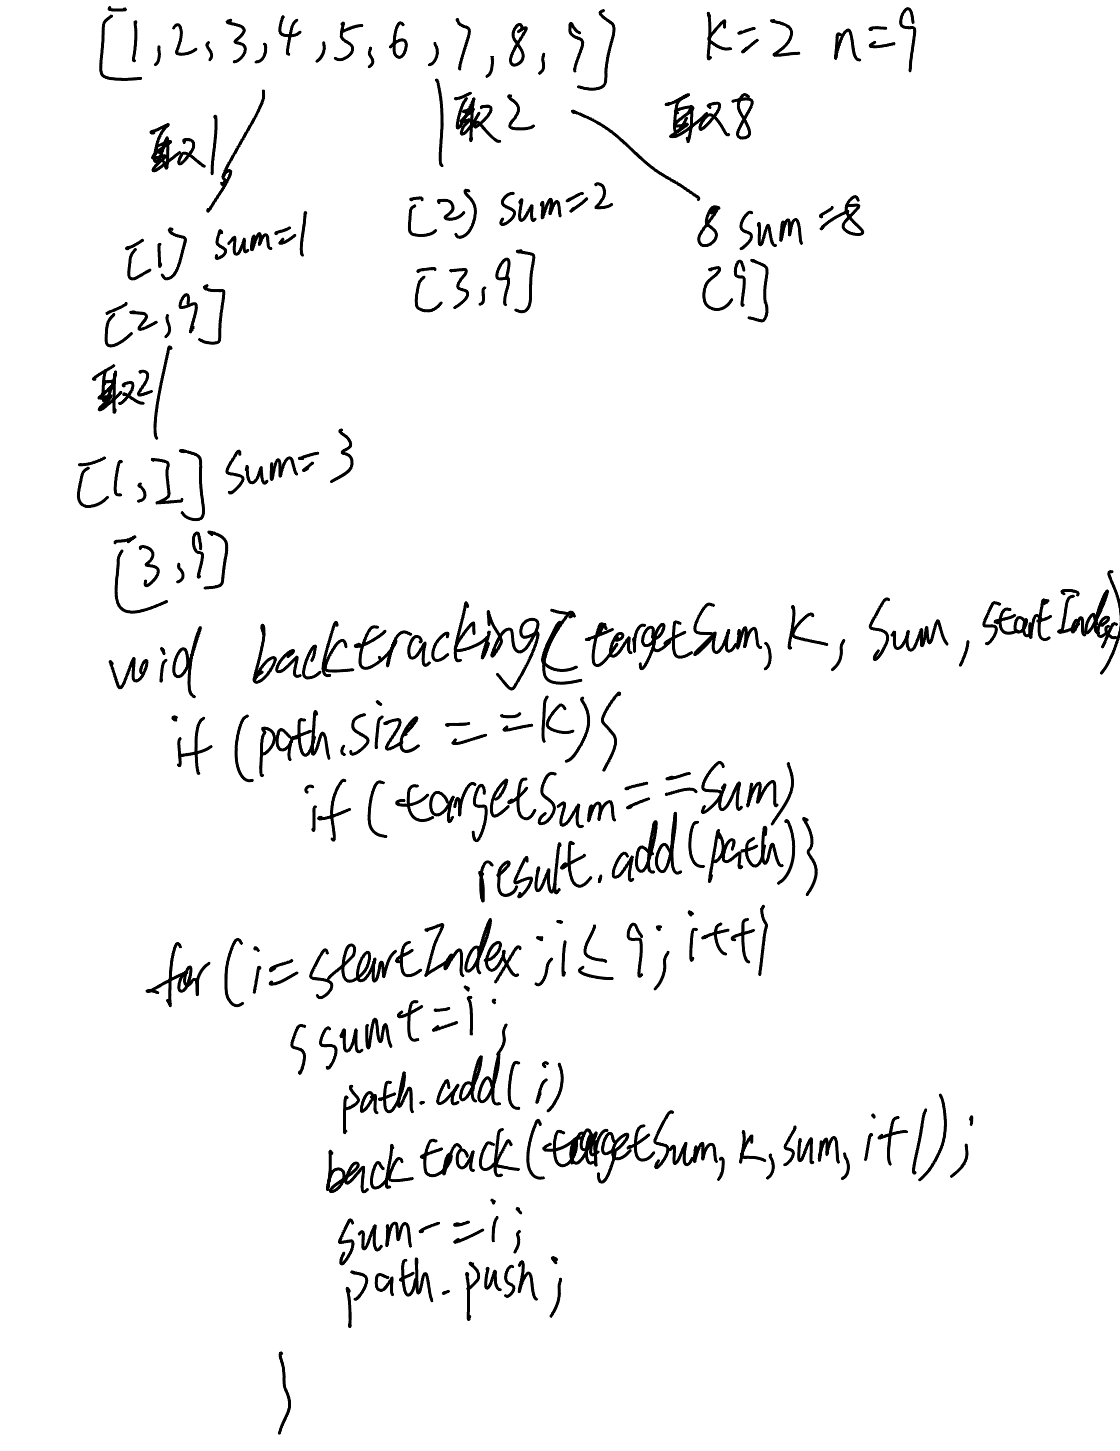 [1,2,3,4,5,6,7,8,9] K=2 n=9
取1 取2 取8
[1] sum=1 [2] sum=2 8 sum=8
[2,9] [3,9] [9]
取2
[1,2] sum=3
[3,9]
void backtracking(targetSum, K, Sum, startIndex)
if (path.size ==K){
if (targetSum==Sum)
result.add(path)}
for (i=startIndex;i≤9;i++)
{sum+=i;
path.add(i)
backtrack(targetSum,K,sum,i+1);
sum-=i;
path.push;
}